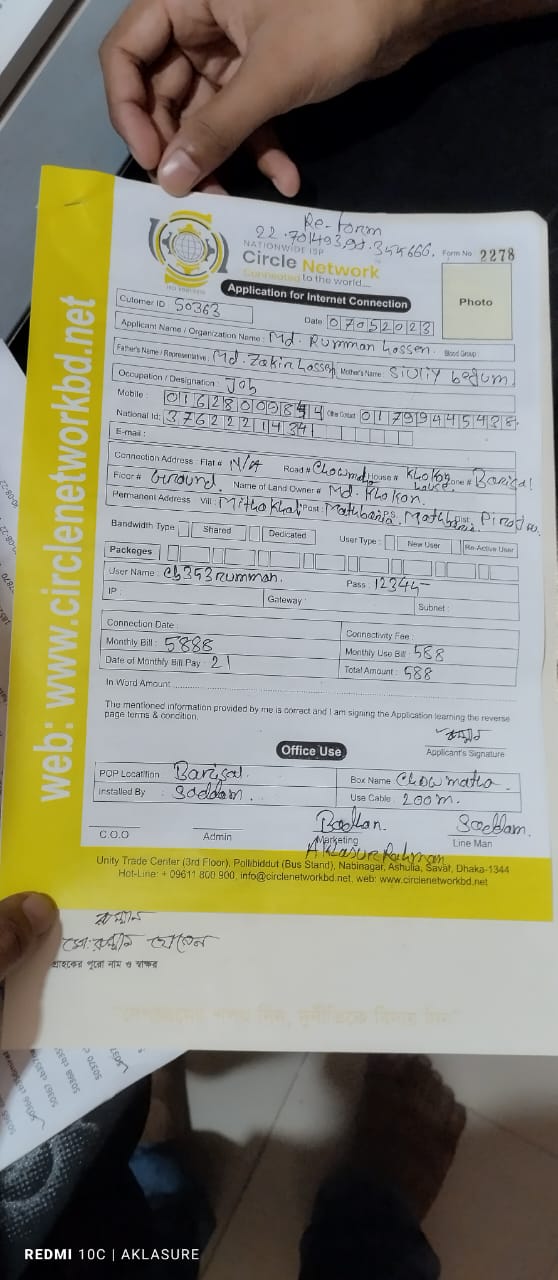 Re-form
22.701493,90.354666.
NATIONWIDE ISP
Circle Network
Connected to the world....
Form No 2278
Photo
ISO 9001:2015
Application for Internet Connection
Cutomer ID 50363
Date 07052023
Applicant Name / Organization Name : Md. Rumman Hossen. Blood Group :
Father's Name / Representative : Md. Zakir Hossen Mother's Name : Siuliy begum
Occupation / Designation : Job
Mobile : Other Contact
National Id: 3762221434
E-mail :
Connection Address Flat # N/A Road # Chowmatha House # Khokon house. Zone # Barisal
Floor # Ground. Name of Land Owner # Md. Khokon.
Permanent Address Vill: Mithakhali Post:
Bandwidth Type Shared Dedicated User Type : New User Re-Active User
Packeges
User Name : cb353rumman. Pass : 12345
IP : Gateway : Subnet :
Connection Date : Connectivity Fee :
Monthly Bill : 5888 Monthly Use Bill : 588
Date of Monthly Bill Pay : 21 Total Amount : 588
In Word Amount
The mentioned information provided by me is correct and I am signing the Application learning the reverse
page terms & condition.
Applicant's Signature
Office Use
POP Locatition Barisal Box Name Chowmatha
Installed By : Saddam. Use Cable : 200m.
Saddam.
C.O.O Admin Marketing Line Man
Aklasure Rahman
Unity Trade Center (3rd Floor), Pollibiddut (Bus Stand), Nabinagar, Ashulia, Savar, Dhaka-1344
Hot-Line: + 09611 800 900, info@circlenetworkbd.net, web: www.circlenetworkbd.net
web: www.circlenetworkbd.net
রুম্মান
মো: রুম্মান হোসেন
গ্রাহকের পুরো নাম ও স্বাক্ষর
REDMI 10C | AKLASURE